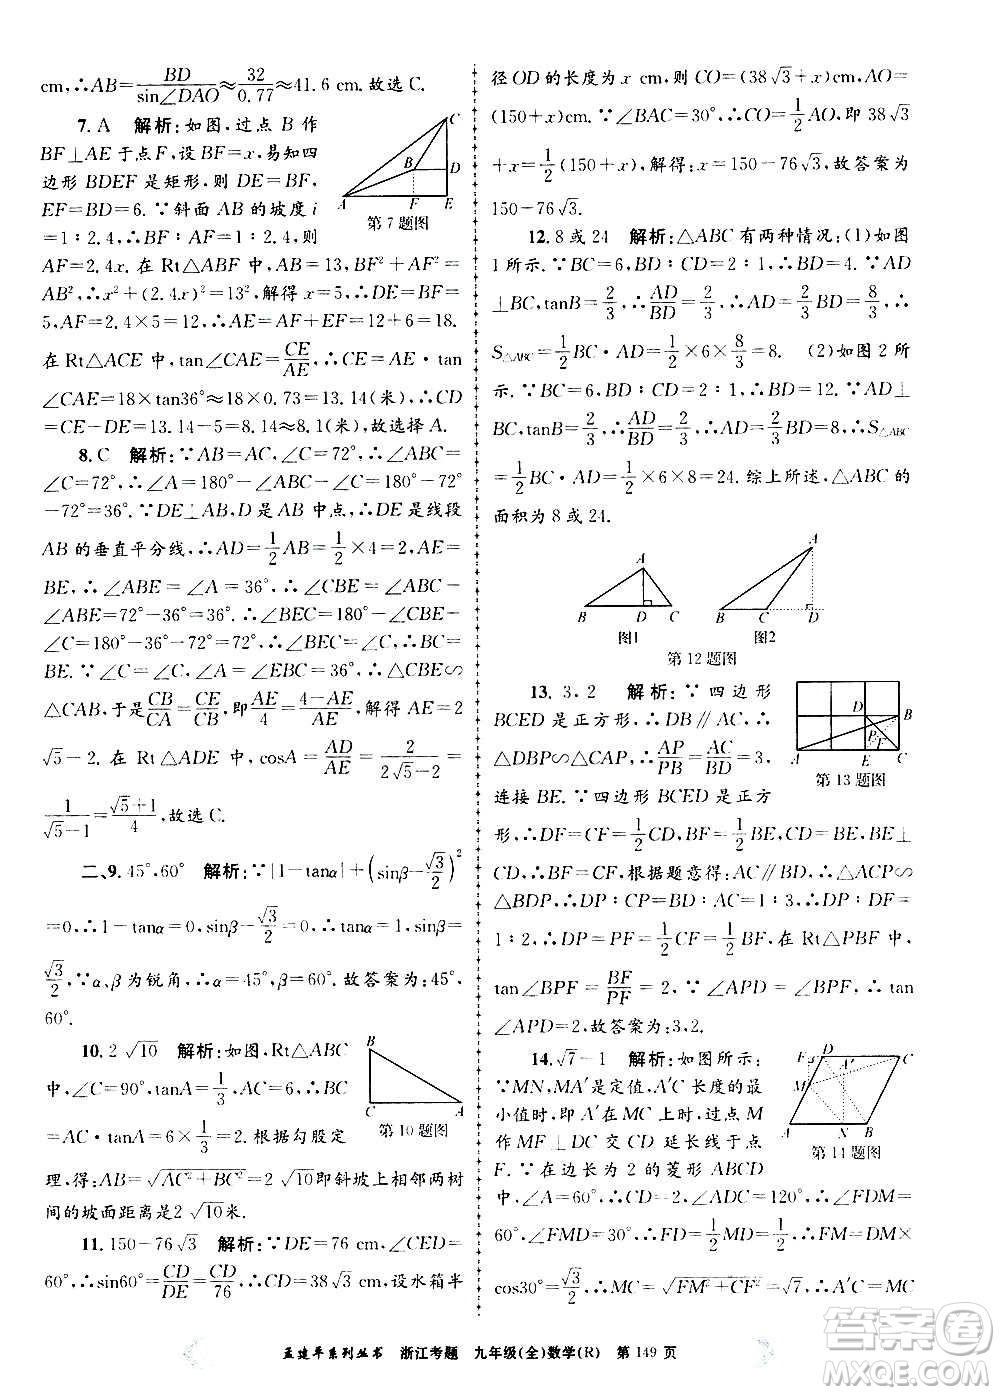 cm,∴AB=BD/sin∠DAO≈32/0.77≈41.6 cm.故选C.
7. A 解析:如图,过点 B 作
BF⊥AE于点F,设BF=x,易知四
边形 BDEF 是矩形,则 DE=BF,
EF=BD=6.∵斜面 AB 的坡度 i
=1∶2.4,∴AF=2.4BF,∴BF=x,
AF=2.4x.在 Rt△ABF 中,BF²+AF²=
AB²,∴x²+(2.4x)²=13²,解得 x=5,∴DE=BF=
5,AF=2.4×5=12,∴AE=AF+EF=12+6=18.
在 Rt△ACE 中,tan∠CAE=CE/AE,∴CE=AE·tan
∠CAE=18×tan36°≈18×0.73=13.14(米),∴CD
=CE-DE=13.14-5=8.14≈8.1(米),故选择A.
A B C D F E
第7题图
8. C 解析:∵AB=AC,∠C=72°,∴∠ABC=
∠C=72°,∴∠A=180°-∠ABC-∠C=180°-72°
-72°=36°.∵DE⊥AB,D是AB中点,∴DE是线段
AB的垂直平分线,∴AD=1/2AB=1/2×4=2,AE=
BE,∴∠ABE=∠A=36°,∴∠CBE=∠CBA-
∠ABE=72°-36°=36°,∴∠BEC=180°-∠CBE-
∠C=180°-36°-72°=72°,∴∠BEC=∠C,∴BC=
BE.∵∠C=∠C,∠A=∠EBC=36°,∴△CBE∽
△CAB,于是CB/CA=CE/CB,即AE/4=(4-AE)/AE,解得AE=2
√5-2.在 Rt△ADE 中,cosA=AD/AE=2/(2√5-2)=
1/(√5-1)=(√5+1)/4,故选C.
二、9. 45°,60° 解析:∵|1-tanα|+(sinβ-√3/2)²
=0,∴1-tanα=0,sinβ-√3/2=0,∴tanα=1,sinβ=
√3/2,∵α,β为锐角,∴α=45°,β=60°.故答案为:45°,
60°.
10. 2√10 解析:如图,Rt△ABC
中,∠C=90°,tanA=1/3,AC=6,∴BC
=AC·tanA=6×1/3=2.根据勾股定
理,得:AB=√(AC²+BC²)=2√10.即斜坡上相邻两树
间的坡面距离是2√10米.
B C A
第10题图
11. 150-76√3 解析:∵DE=76 cm,∠CED=
60°,∴sin60°=CD/DE=CD/76,∴CD=38√3 cm,设水箱半
径OD的长度为 x cm,则 CO=(38√3+x)cm,AO=
(150+x)cm.∵∠BAC=30°,∴CO=1/2AO,即38√3
+x=1/2(150+x),解得:x=150-76√3,故答案为:
150-76√3.
12. 8或24 解析:△ABC有两种情况:(1)如图
1所示.∵BC=6,BD∶CD=2∶1,∴BD=4.∵AD
⊥BC,tanB=2/3,∴AD/BD=2/3,∴AD=2/3BD=8/3,∴
S△ABC=1/2BC·AD=1/2×6×8/3=8. (2)如图2所
示.∵BC=6,BD∶CD=2∶1,∴BD=12.∵AD⊥
BC,tanB=2/3,∴AD/BD=2/3,∴AD=2/3BD=8,∴S△ABC
=1/2BC·AD=1/2×6×8=24.综上所述,△ABC的
面积为8或24.
A B D C
图1
A B C D
图2
第12题图
13. 3,2 解析:∵四边形
BCED是正方形,∴DB∥AC,∴
△DBP∽△CAP,∴AP/PB=AC/BD=3.
连接BE.∵四边形BCED是正方
形,∴DF=CF=1/2CD,BF=1/2BE,CD=BE,BE⊥
CD,∴BF=CF.根据题意得:AC∥BD,∴△ACP∽
△BDP,∴DP∶CP=BD∶AC=1∶3,∴DP∶DF=
1∶2,∴DP=PF=1/2CF=1/2BF.在 Rt△PBF 中,
tan∠BPF=BF/PF=2.∵∠APD=∠BPF,∴tan
∠APD=2,故答案为:3,2.
D B P F A E C
第13题图
14. √7-1 解析:如图所示:
∵MN,MA′是定值,A′C长度的最
小值时,即A′在MC上时,过点M
作MF⊥DC交CD延长线于点
F.∵在边长为2的菱形ABCD
中,∠A=60°,M为AD中点,∴2MD=AD=CD=2,∠ADC=120°,∴∠FDM=
60°,∠FMD=30°,∴FD=1/2MD=1/2,∴FM=DM×
cos30°=√3/2,∴MC=√(FM²+CF²)=√7,∴A′C=
F D A′ C M A N B
第14题图
孟建平系列丛书 浙江考题 九年级(全)数学(R) 第149页
答案圈
MXQE.COM